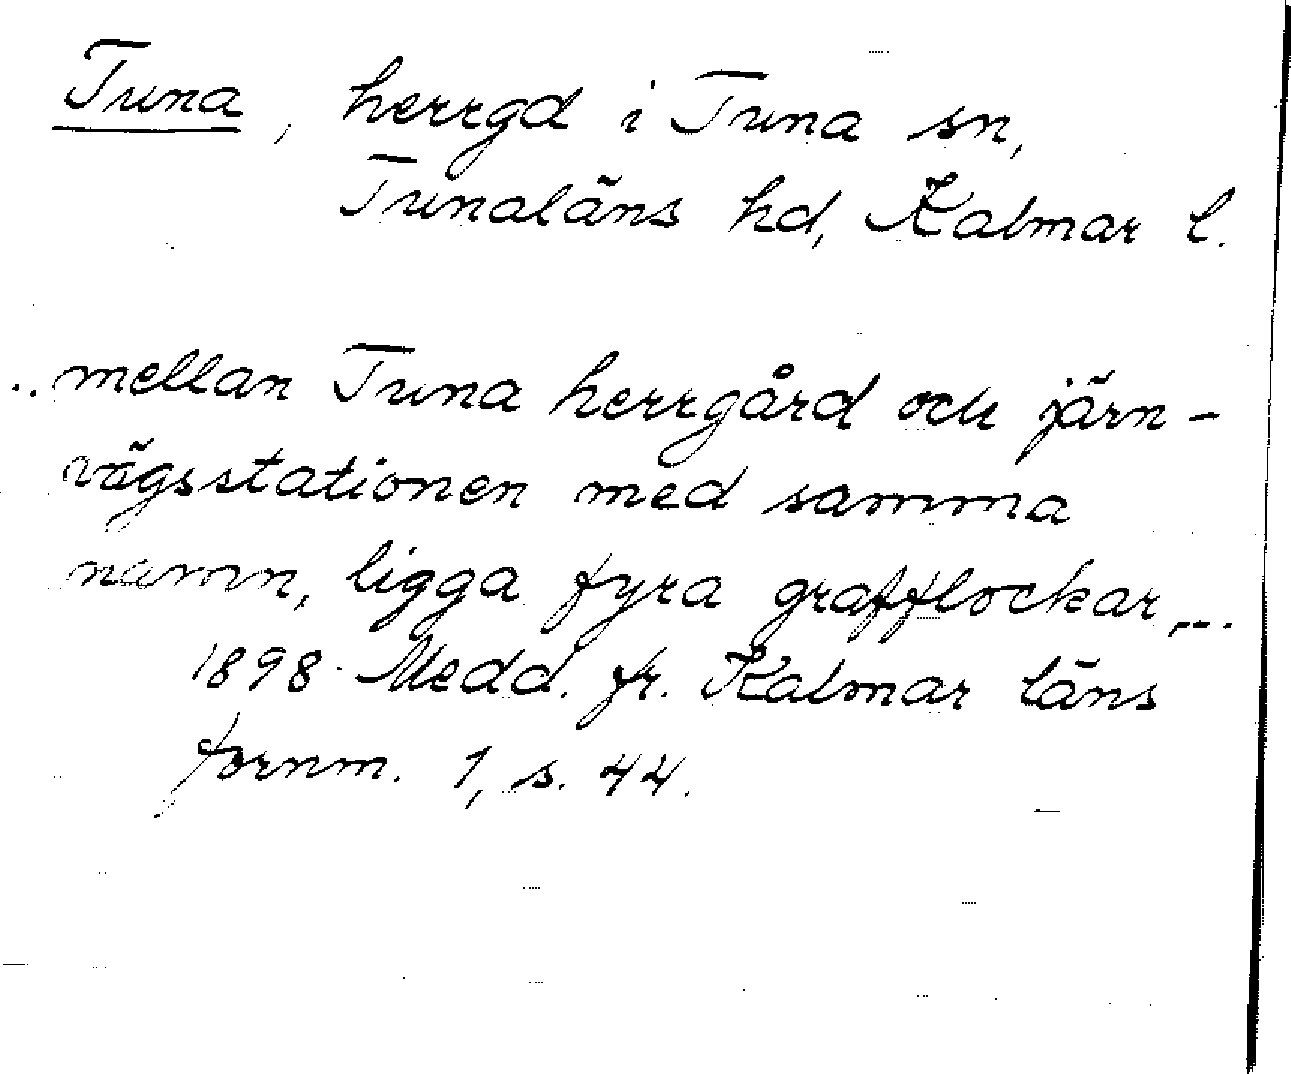 Tuna, herrgd i Tuna sn,
Tunaläns hd, Kalmar l.
..mellan Tuna herrgård och järn-
vägsstationen med samma
namn, ligga fyra grafflockar,...
1898 Medd. fr. Kalmar läns
fornm. 1, s. 44.